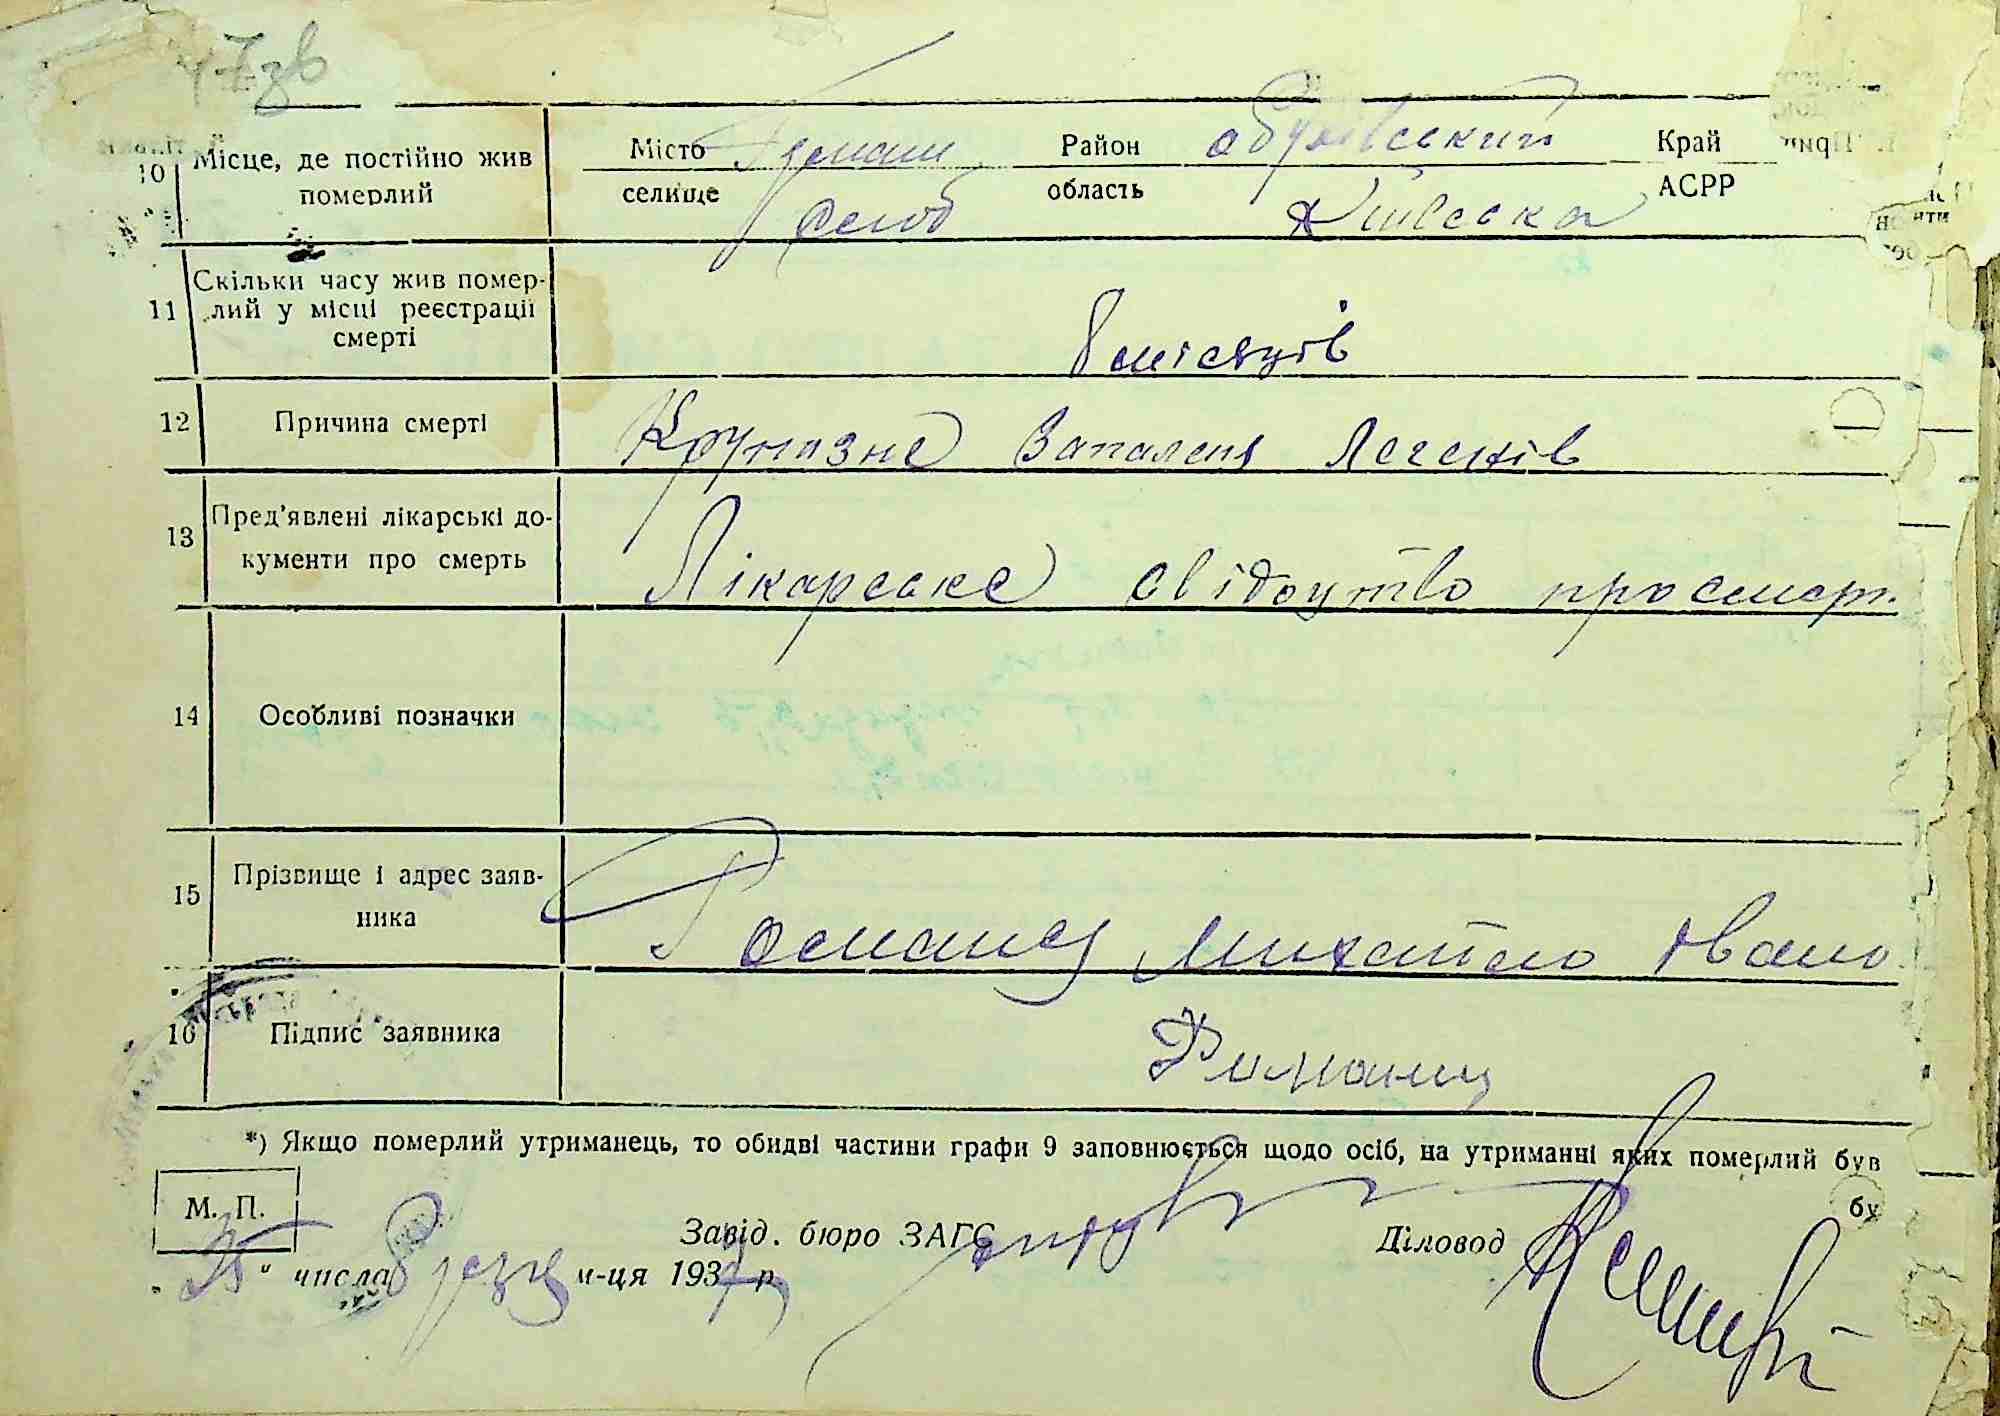 47зв
10 Місце, де постійно жив померлий
Місто Район Обухівський Край
селище область Київска АСРР
11 Скільки часу жив помер-
лий у місці реєстрації
смерті
8 місяців
12 Причина смерті Крупозне Запаленя Легенів
13 Пред'явлені лікарські до-
кументи про смерть
Лікарське свідоцтво про смерт.
14 Особливі позначки
15 Прізвище і адрес заяв-
ника
Романец Михайло Івано
16 Підпис заявника Романец
*) Якщо померлий утриманець, то обидві частини графи 9 заповнюється щодо осіб, на утриманні яких померлий був
М. П.
Завід. бюро ЗАГС Діловод
„25" числа березня м-ця 1937 р.